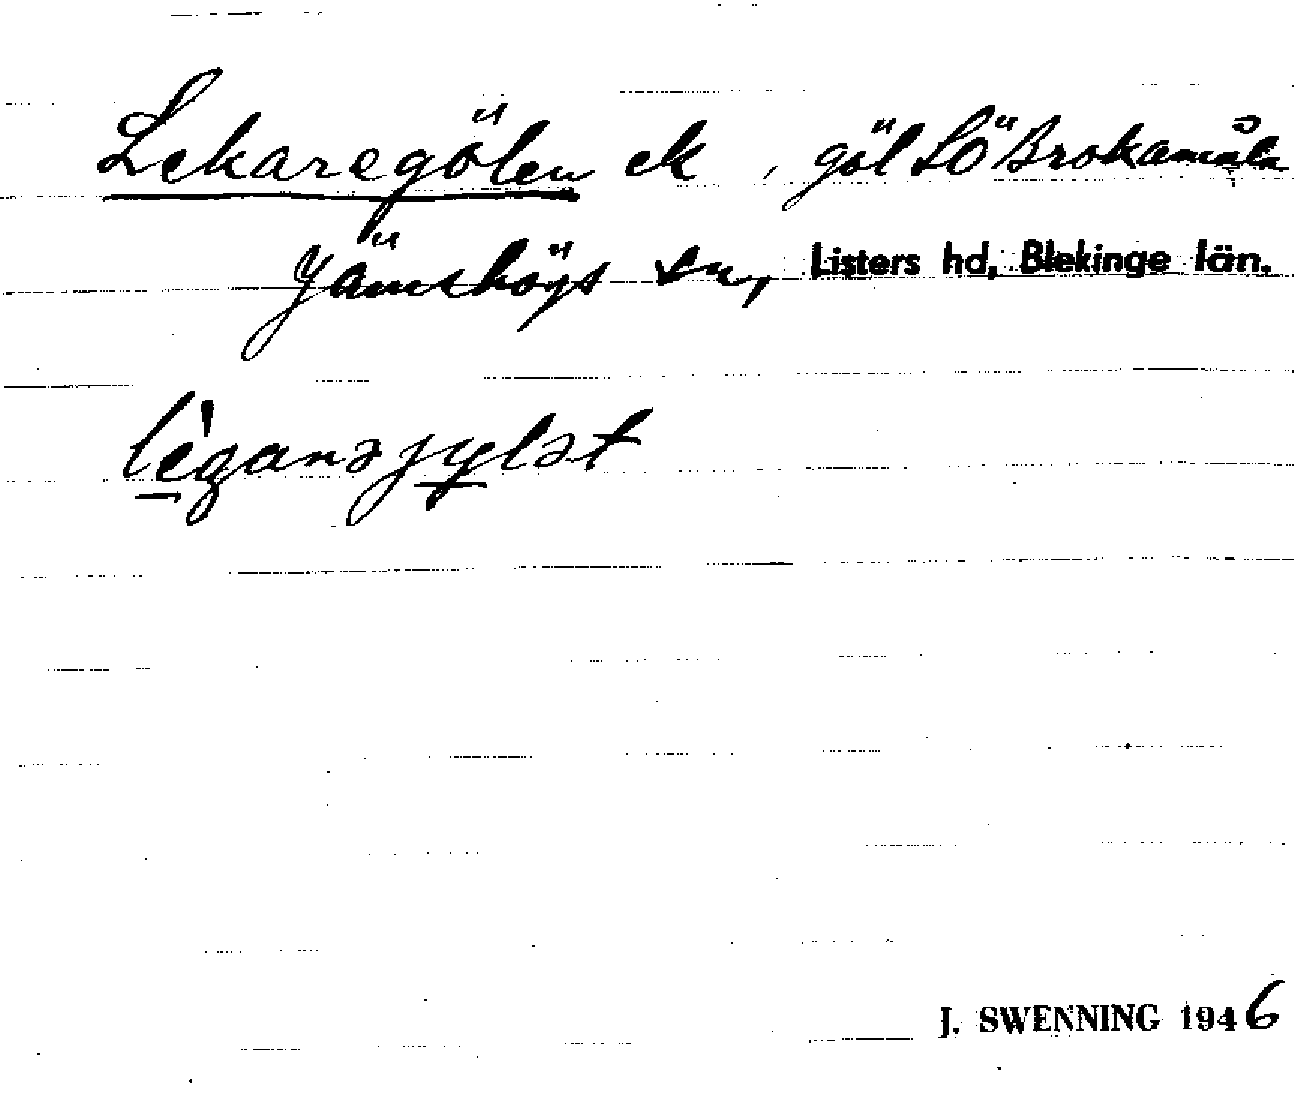 Lekaregölen ek , göl SÖ Brokamåla
Jämshögs sn, Listers hd, Blekinge län.
J. SWENNING 1946